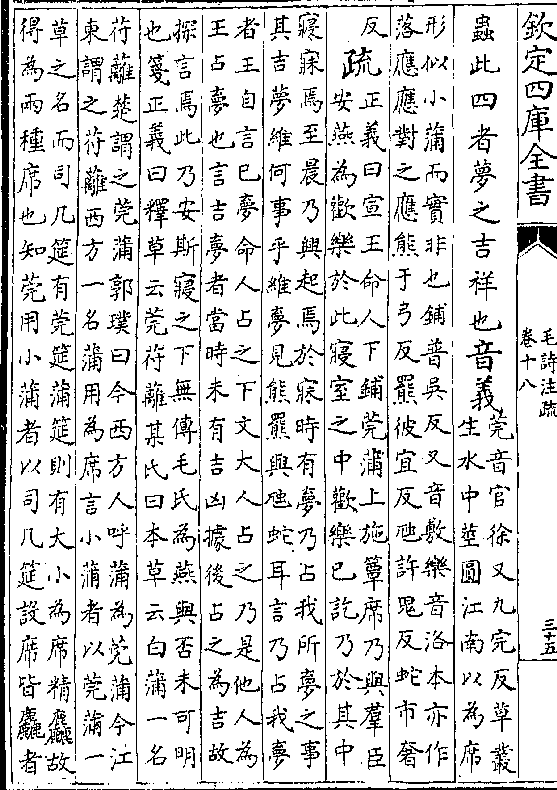 欽定四庫全書
毛詩注疏
卷十八
三十五
蟲此四者夢之吉祥也音義
莞音官徐又九完反草叢
生水中莖圓江南以為席
形似小蒲而實非也鋪普吳反又音敷樂音洛本亦作
落應應對之應熊于弓反羆彼宜反虺許毘反蛇市奢
反
疏
正義曰宣王命人下鋪莞蒲上施簟席乃與羣臣
安燕為歡樂於此寢室之中歡樂已訖乃於其中
寢寐焉至晨乃興起焉於寐時有夢乃占我所夢之事
其吉夢維何事乎維夢見熊羆與虺蛇耳言乃占我夢
者王自言已夢命人占之下文大人占之乃是他人為
王占夢也言吉夢者當時未有吉凶據後占之為吉故
探言焉此乃安斯寢之下無傳毛氏為燕與否未可明
也箋正義曰釋草云莞苻離某氏曰本草云白蒲一名
苻離楚謂之莞蒲郭璞曰今西方人呼蒲為莞蒲今江
東謂之苻離西方一名蒲用為席言小蒲者以莞蒲一
草之名而司几筵有莞筵蒲筵則有大小為席精麤故
得為兩種席也知莞用小蒲者以司几筵設席皆麤者